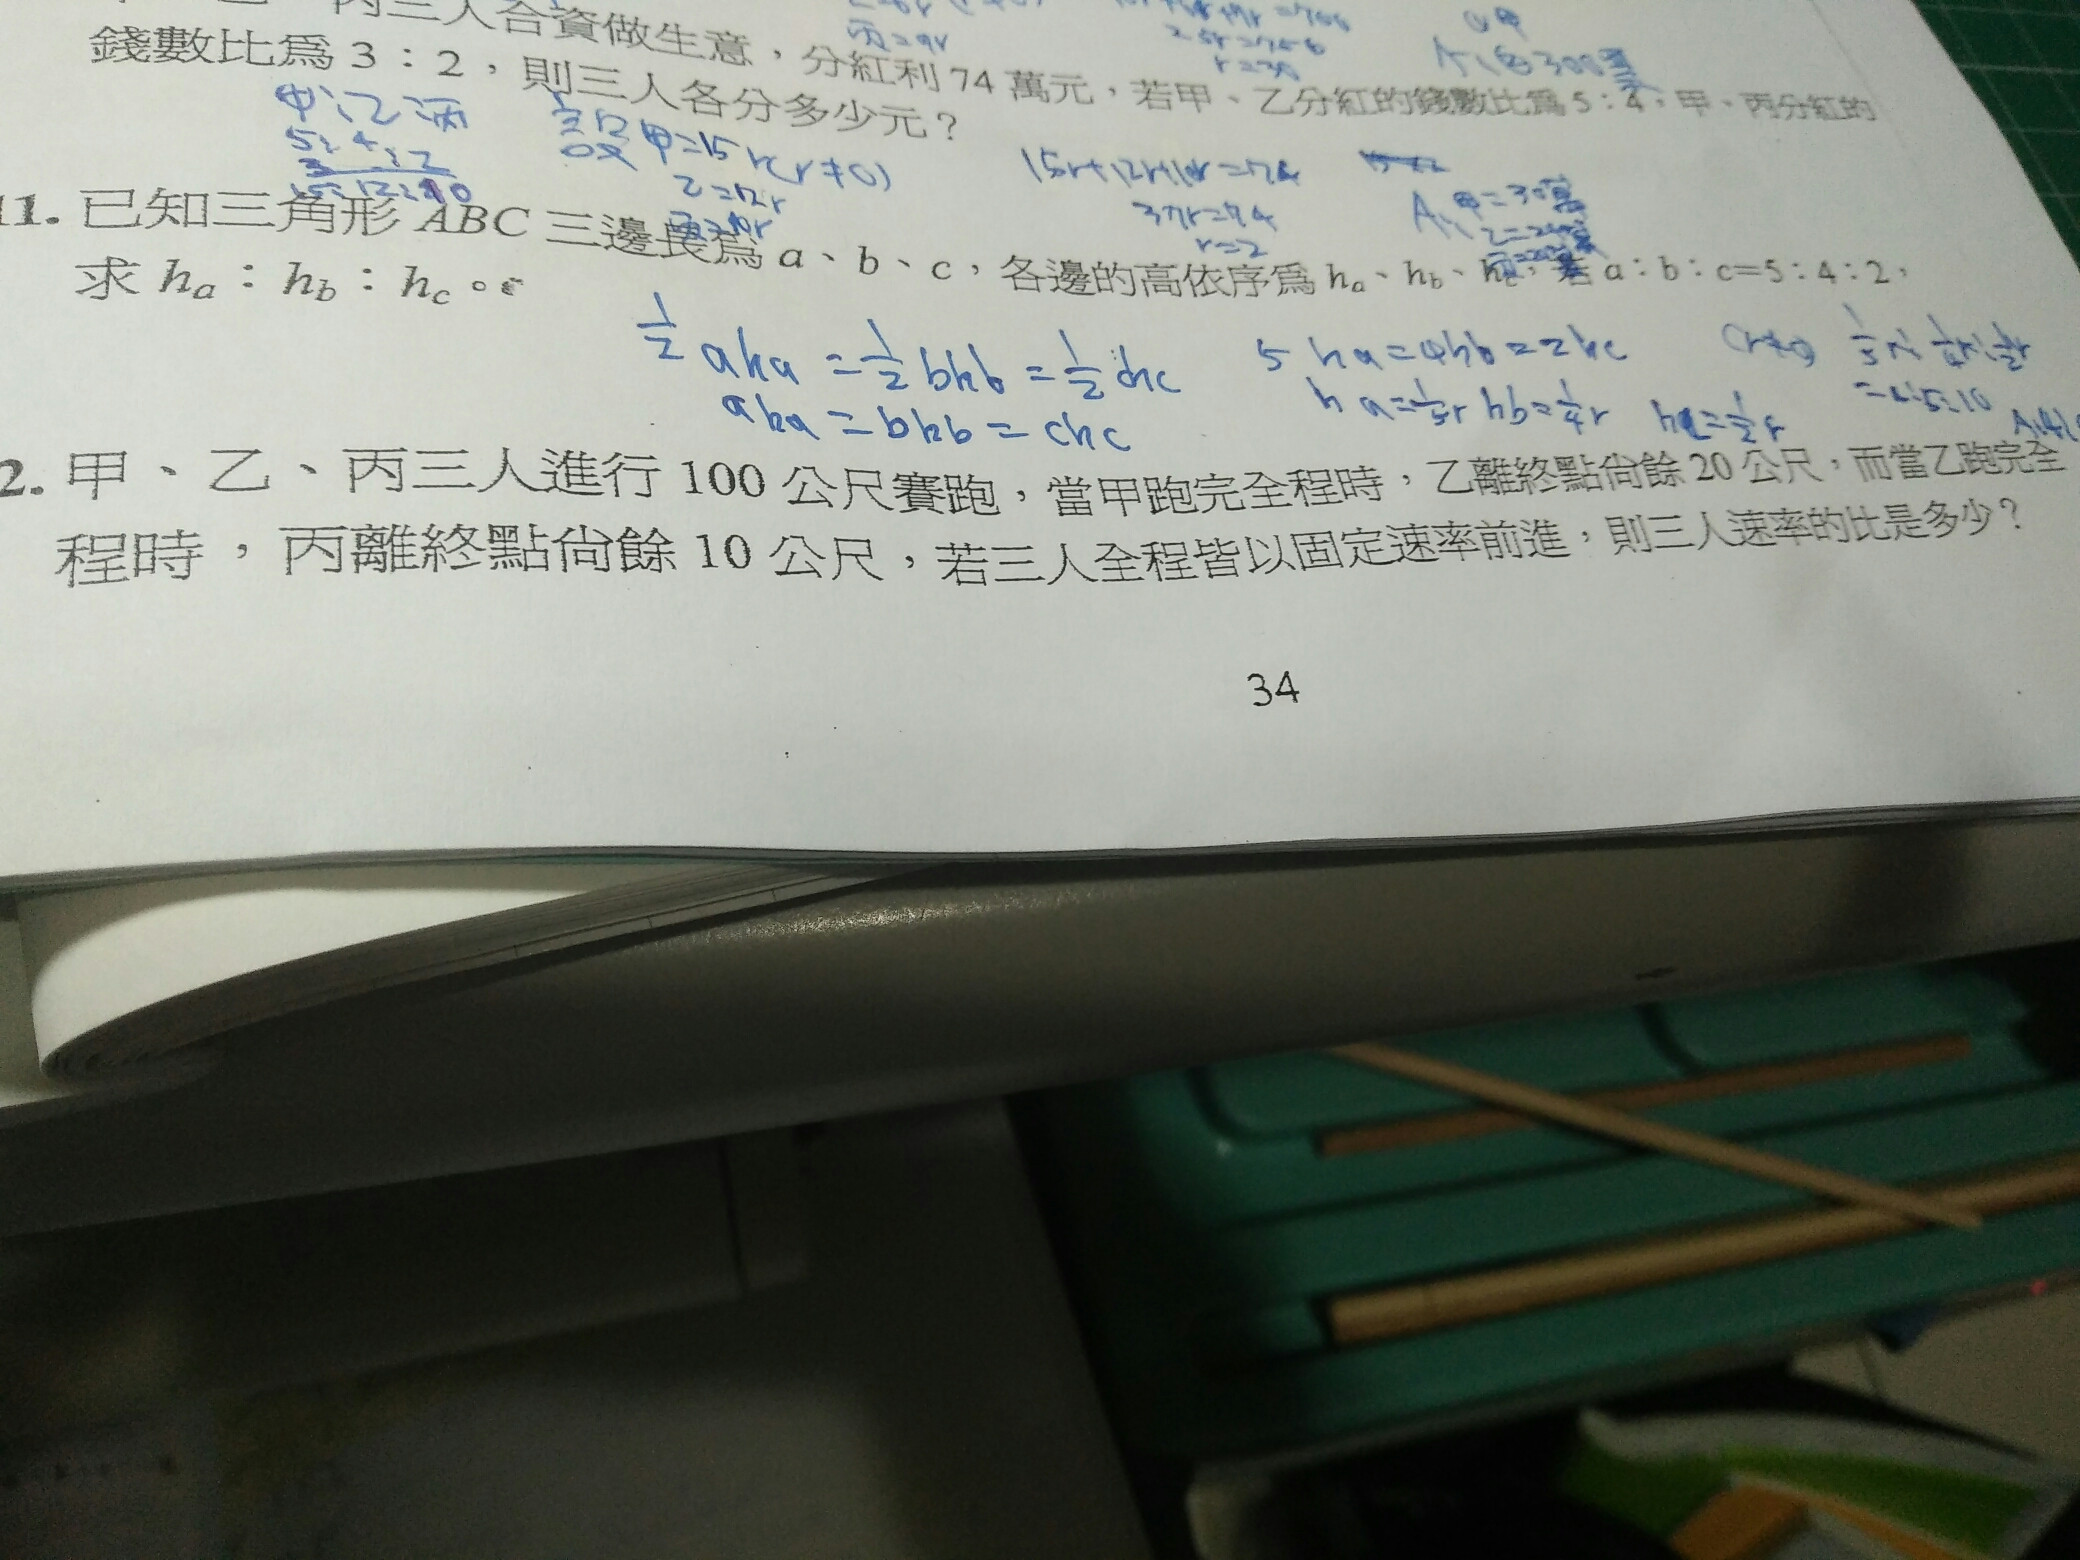 丙三人合資做生意，分紅利 74 萬元，若甲、乙分紅的錢數比為 5：4，甲、丙分紅的
錢數比為 3：2，則三人各分多少元？
甲、乙、丙
5：4
3：2
15：12：10
設甲=15r(r≠0)
乙=12r
丙=10r
15r+12r+10r=74
37r=74
r=2
11. 已知三角形 ABC 三邊長為 a、b、c，各邊的高依序為 ha、hb、hc，若 a：b：c=5：4：2，
求 ha：hb：hc。
1/2 aha = 1/2 bhb = 1/2 chc
aha = bhb = chc
5ha=4hb=2hc
ha=1/5r hb=1/4r hc=1/2r
(r≠0)
1/5r：1/4r：1/2r
=4:5:10
2. 甲、乙、丙三人進行 100 公尺賽跑，當甲跑完全程時，乙離終點尚餘 20 公尺，而當乙跑完全
程時，丙離終點尚餘 10 公尺，若三人全程皆以固定速率前進，則三人速率的比是多少？
34